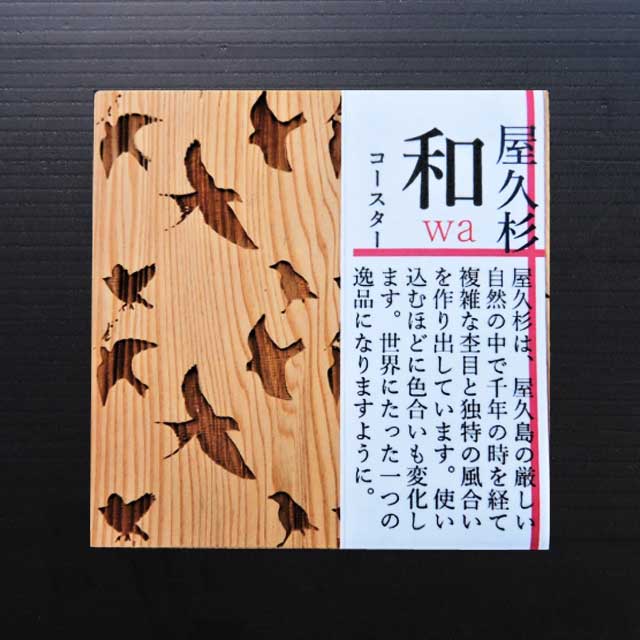 屋久杉
和
wa
コースター
屋久杉は、屋久島の厳しい
自然の中で千年の時を経て
複雑な杢目と独特の風合い
を作り出しています。使い
込むほどに色合いも変化し
ます。世界にたった一つの
逸品になりますように。